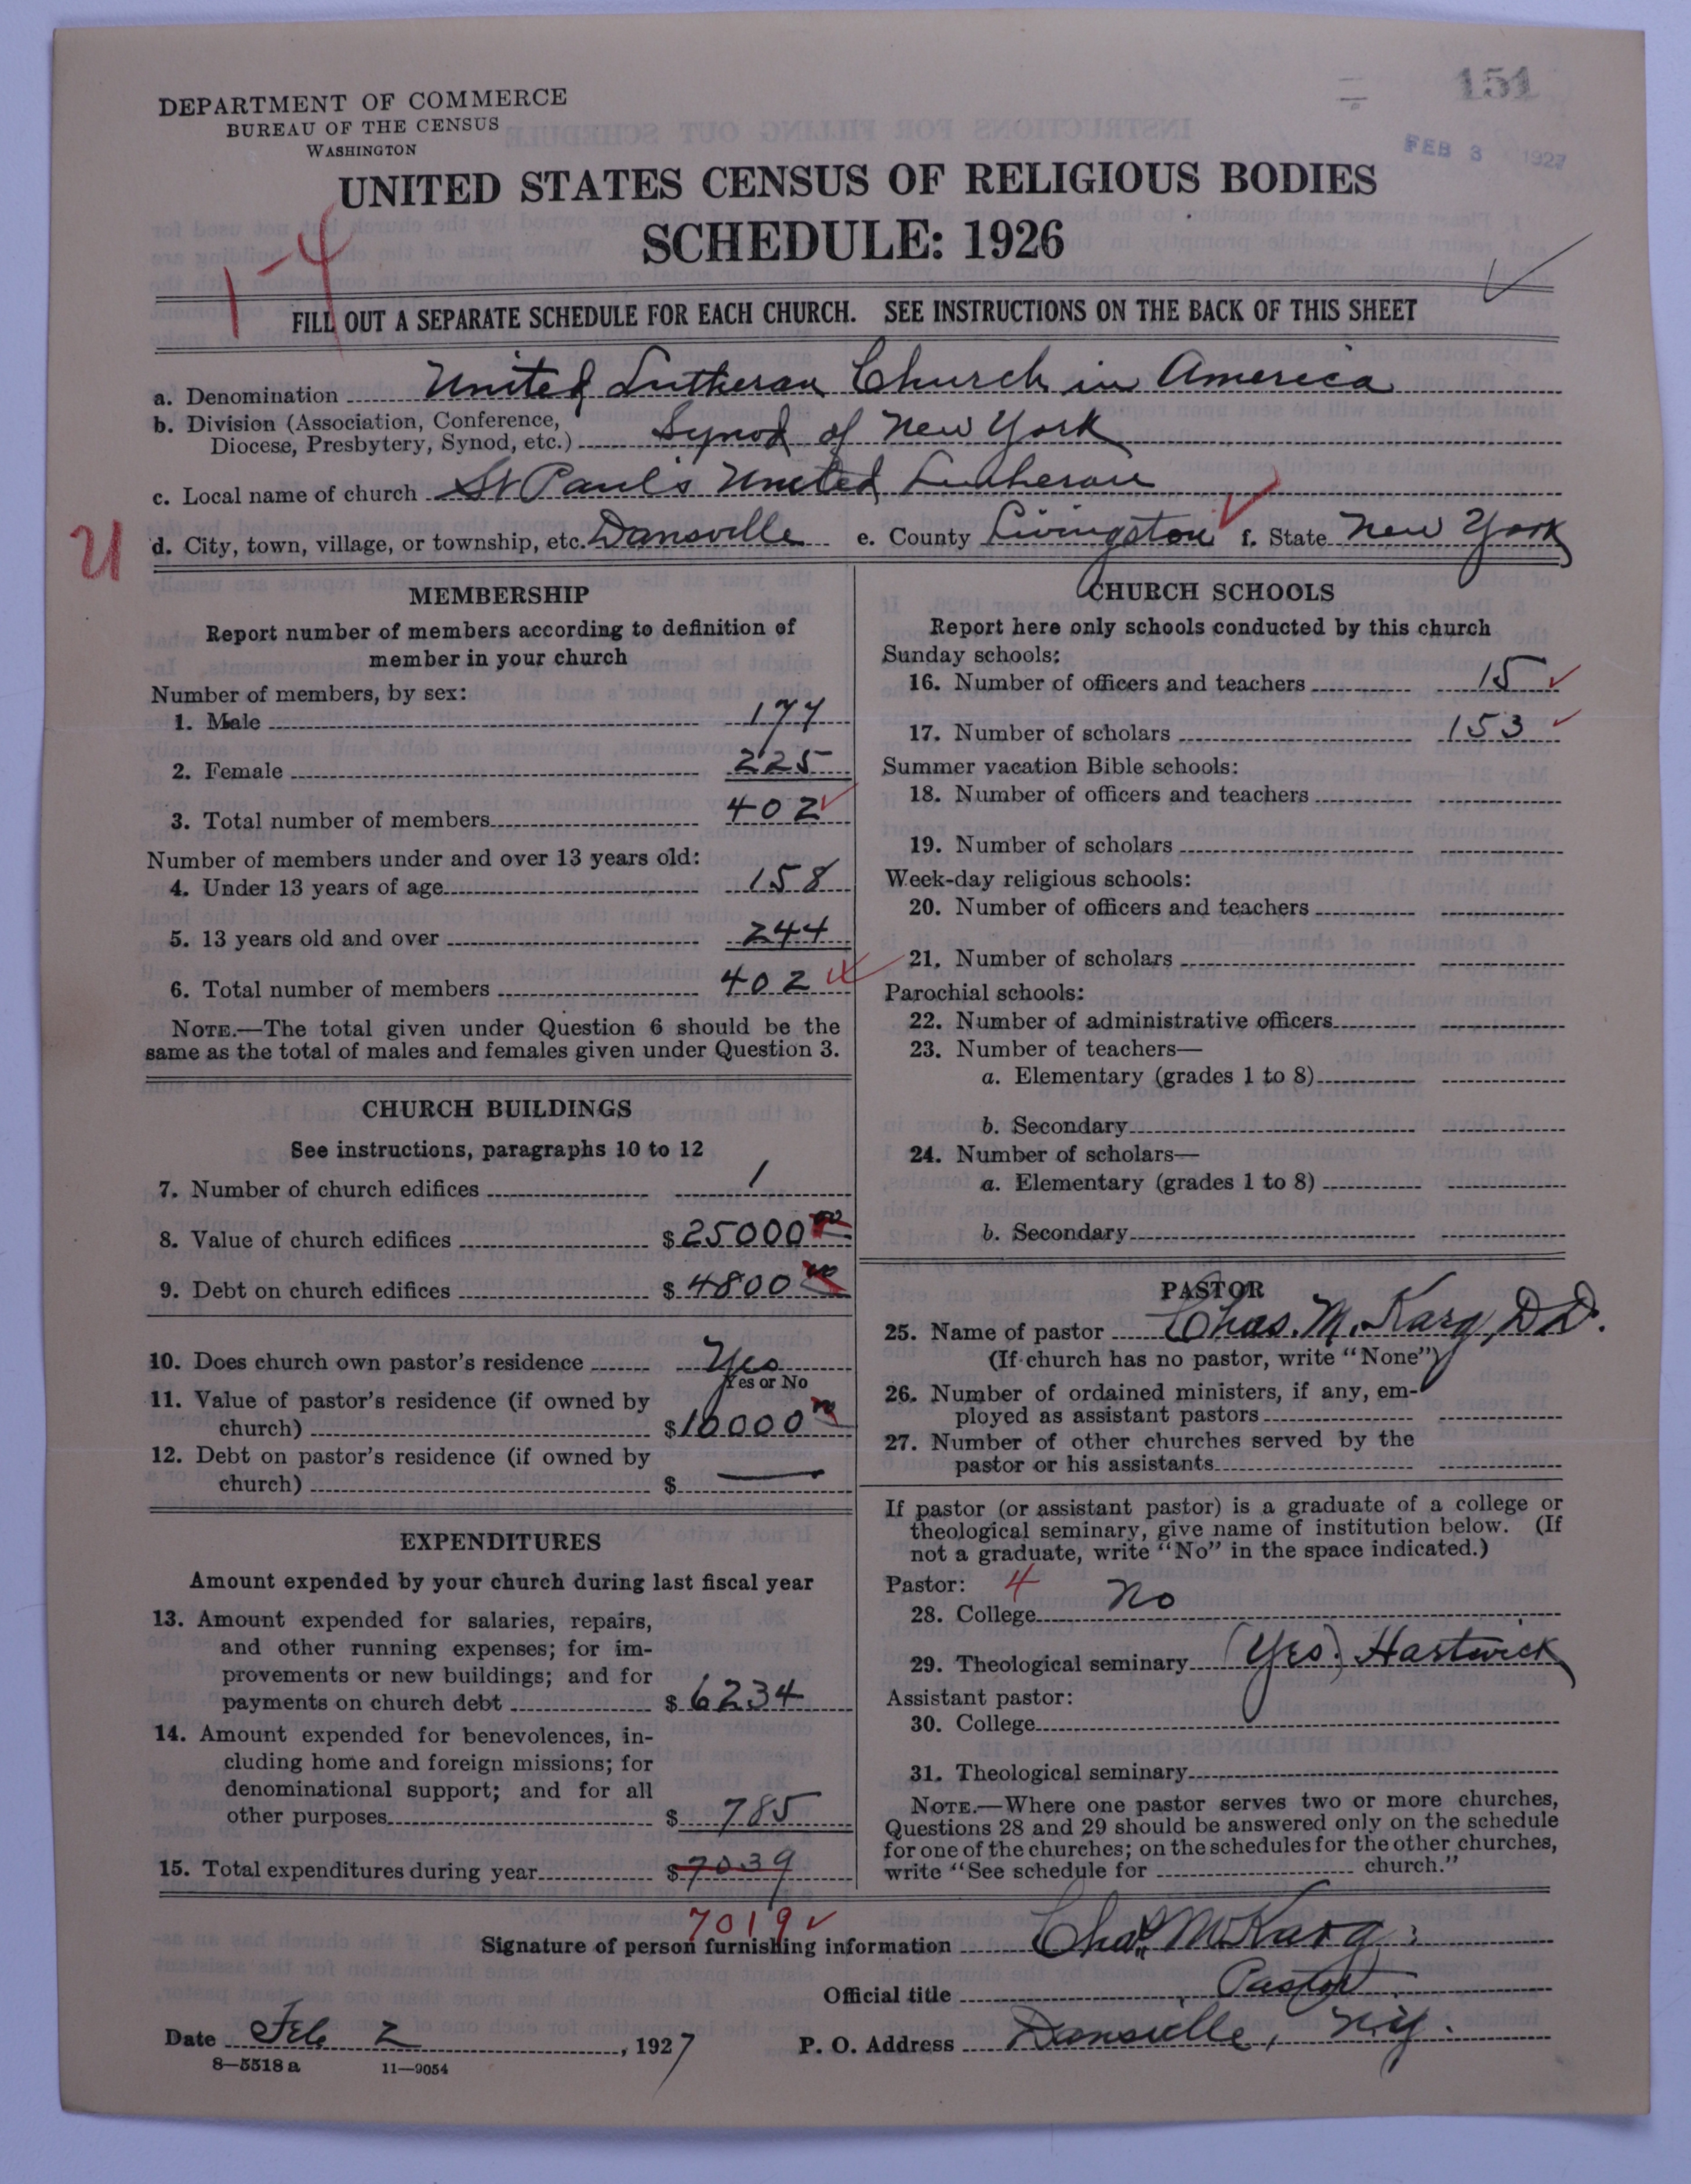 151
FEB 3 1927
DEPARTMENT OF COMMERCE
BUREAU OF THE CENSUS
WASHINGTON
UNITED STATES CENSUS OF RELIGIOUS BODIES
SCHEDULE: 1926
1-4
FILL OUT A SEPARATE SCHEDULE FOR EACH CHURCH. SEE INSTRUCTIONS ON THE BACK OF THIS SHEET
a. Denomination United Lutheran Church in America
b. Division (Association, Conference,
Diocese, Presbytery, Synod, etc.) Synod of New York
c. Local name of church St Paul's United Lutheran
U
d. City, town, village, or township, etc. Dansville e. County Livingston f. State New York
MEMBERSHIP
Report number of members according to definition of
member in your church
Number of members, by sex:
1. Male 177
2. Female 225
3. Total number of members 402
Number of members under and over 13 years old:
4. Under 13 years of age 158
5. 13 years old and over 244
6. Total number of members 402
NOTE.—The total given under Question 6 should be the
same as the total of males and females given under Question 3.
CHURCH BUILDINGS
See instructions, paragraphs 10 to 12
7. Number of church edifices 1
8. Value of church edifices $25000 00
9. Debt on church edifices $4800 00
10. Does church own pastor's residence Yes
Yes or No
11. Value of pastor's residence (if owned by
church) $10000
12. Debt on pastor's residence (if owned by
church) $ —
EXPENDITURES
Amount expended by your church during last fiscal year
13. Amount expended for salaries, repairs,
and other running expenses; for im-
provements or new buildings; and for
payments on church debt $6234
14. Amount expended for benevolences, in-
cluding home and foreign missions; for
denominational support; and for all
other purposes $785
15. Total expenditures during year $7039
7019
CHURCH SCHOOLS
Report here only schools conducted by this church
Sunday schools:
16. Number of officers and teachers 15
17. Number of scholars 153
Summer vacation Bible schools:
18. Number of officers and teachers
19. Number of scholars
Week-day religious schools:
20. Number of officers and teachers
21. Number of scholars
Parochial schools:
22. Number of administrative officers
23. Number of teachers—
a. Elementary (grades 1 to 8)
b. Secondary
24. Number of scholars—
a. Elementary (grades 1 to 8)
b. Secondary
PASTOR
25. Name of pastor Chas. M. Karg, D.D.
(If church has no pastor, write "None")
26. Number of ordained ministers, if any, em-
ployed as assistant pastors
27. Number of other churches served by the
pastor or his assistants
If pastor (or assistant pastor) is a graduate of a college or
theological seminary, give name of institution below. (If
not a graduate, write "No" in the space indicated.)
Pastor: 4
28. College No
29. Theological seminary (Yes.) Hartwick
Assistant pastor:
30. College
31. Theological seminary
NOTE.—Where one pastor serves two or more churches,
Questions 28 and 29 should be answered only on the schedule
for one of the churches; on the schedules for the other churches,
write "See schedule for church."
Signature of person furnishing information Chas. M. Karg.
Official title Pastor
Date Feb 2, 1927 P. O. Address Dansville, N.Y.
8—5518 a 11—9054